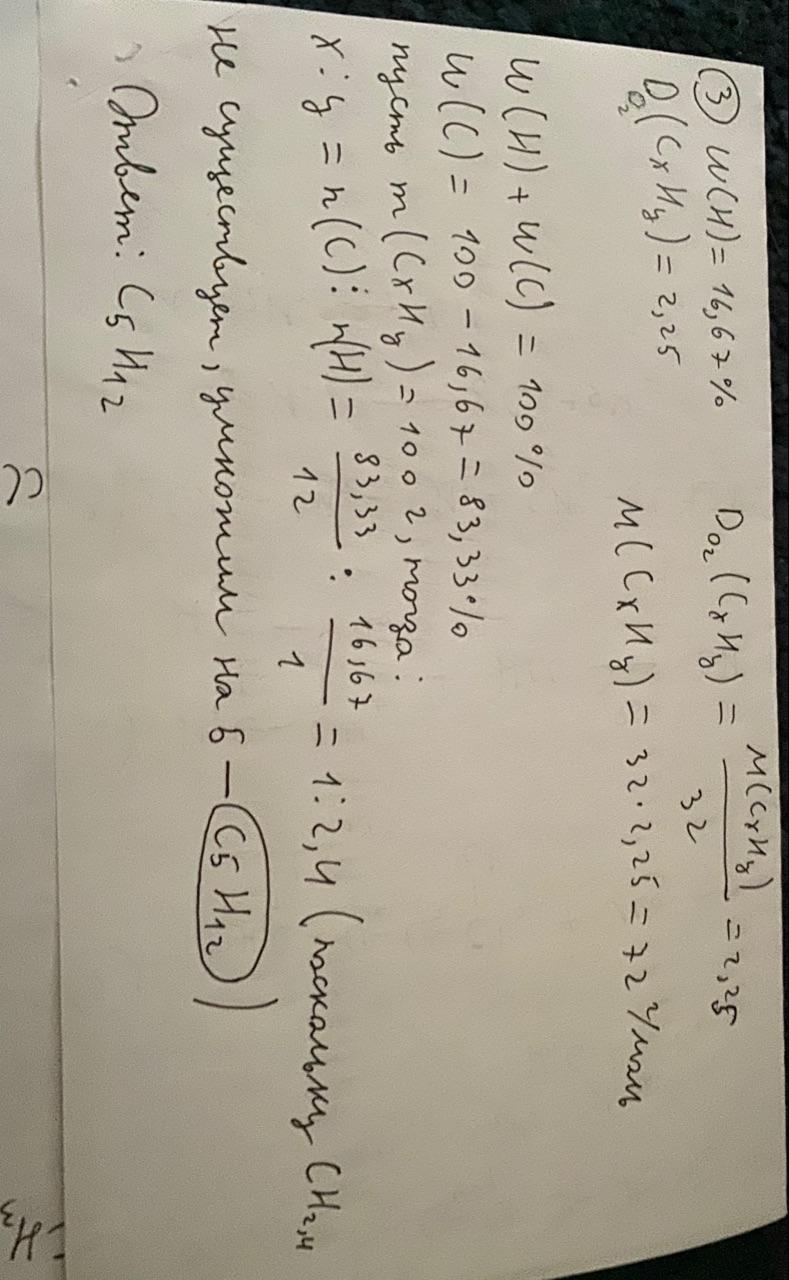 ③ W(H) = 16,67%
D_O₂(CₓHᵧ) = 2,25
D_O₂(CₓHᵧ) = M(CₓHᵧ)/32 = 2,25
M(CₓHᵧ) = 32·2,25 = 72 г/моль
W(H) + W(C) = 100%
W(C) = 100 - 16,67 = 83,33%
пусть m(CₓHᵧ) = 100 г, тогда:
x : y = n(C) : n(H) = 83,33/12 : 16,67/1 = 1 : 2,4 (поскольку CH₂,₄
не существует, умножим на 5 — C₅H₁₂)
Ответ: C₅H₁₂